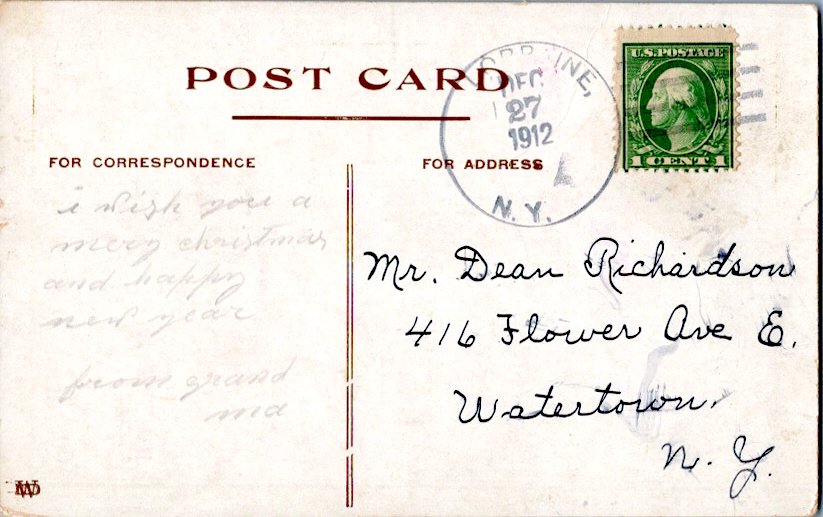 POST CARD
LORRAINE,
DEC
27
1912
N.Y.
U.S. POSTAGE
1 CENT 1
FOR CORRESPONDENCE
FOR ADDRESS
i wish you a
mery christmas
and happy
new year
from grand
ma
Mr. Dean Richardson
416 Flower Ave E.
Watertown,
N. Y.